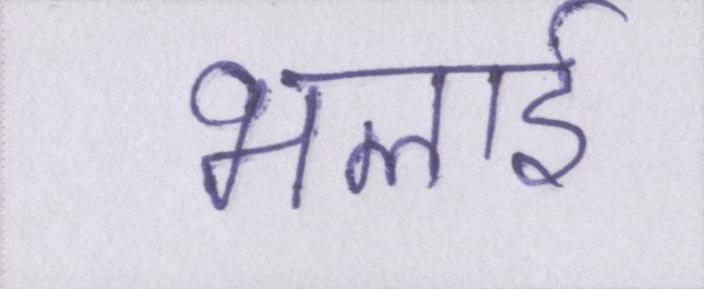 भलाई